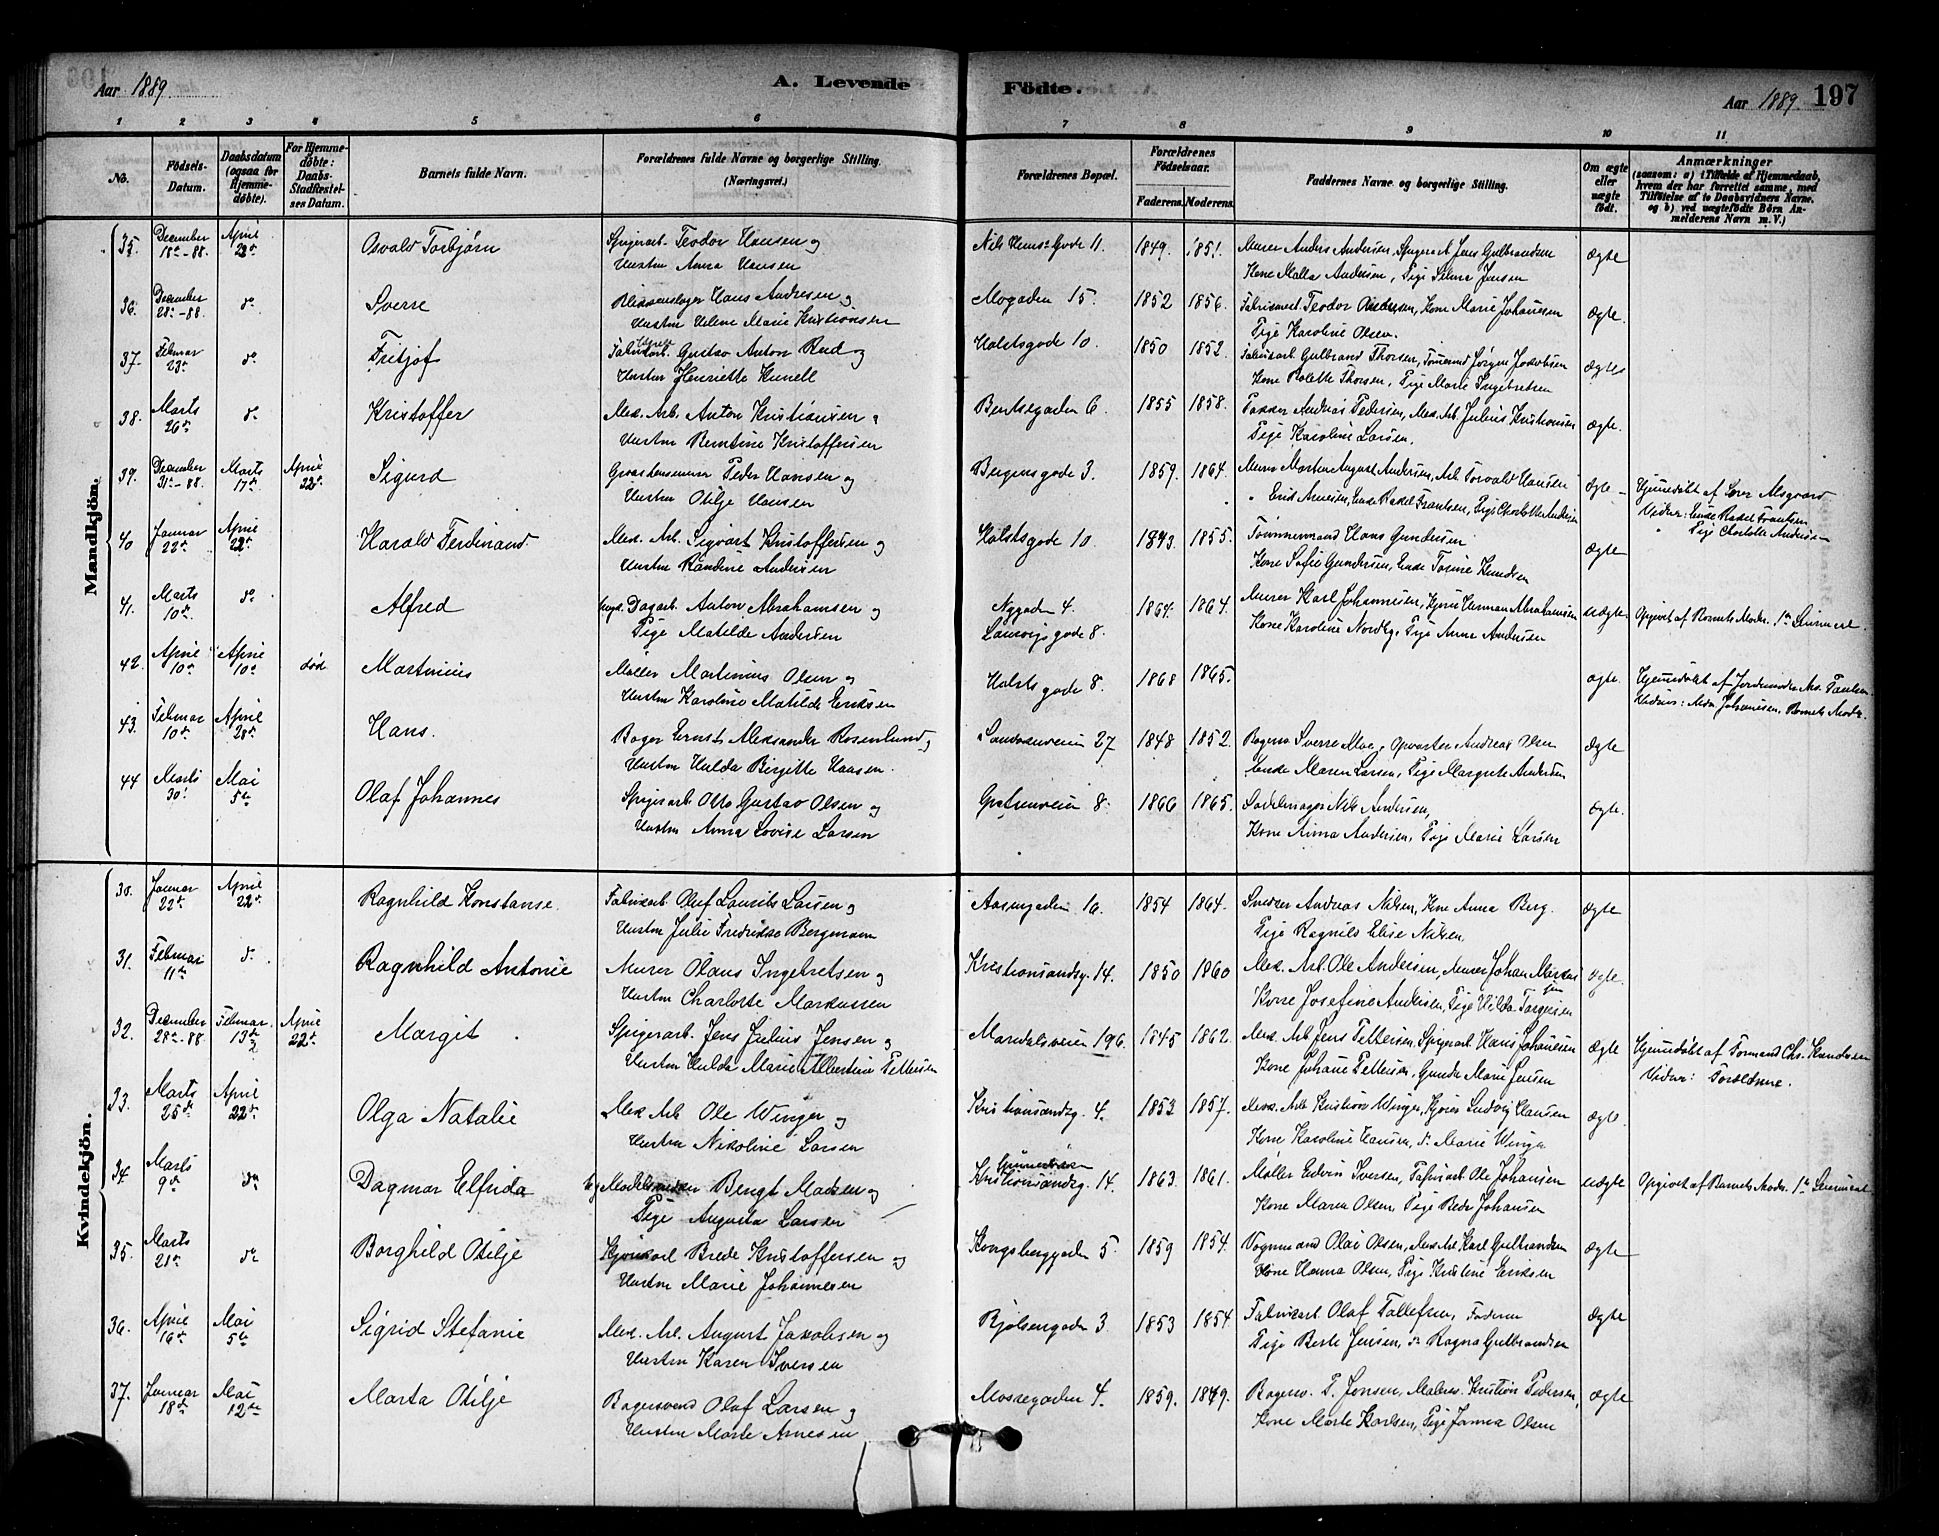 Aar 1889.
A. Levende
Födte.
Aar 1889. 197
1 2 3 4 5 6 7 8 9 10 11
No.
Födsels-Datum.
Daabsdatum (ogsaa for Hjemmedöbte).
For Hjemmedöbte: Daabs-Stadfæstelses Datum.
Barnets fulde Navn.
Forældrenes fulde Navne og borgerlige Stilling. (Næringsvei.)
Forældrenes Bopæl.
Forældrenes Födselsaar.
Faderens. Moderens.
Faddernes Navne og borgerlige Stilling.
Om ægte eller uægte födt.
Anmærkninger
(saasom: a) i Tilfælde af Hjemmedaab, hvem der har forrettet samme, med Tilföielse af to Daabsvidners Navne, og b) ved uægtefödte Börn Anmelderens Navn m.V.)
Mandkjön.
35. December 18de-88. April 22de Osvald Torbjørn Spigerarb. Teodor Hansen og 1849. 1851. Murer Anders Andersen, Spigerarb. Jens Gulbrandsen ægte
Hustru Anna Hansen Kone Malla Andersen, Pige Selma Jensen
36. December 28de-88. do Sverre Blikkenslager Hans Andresen og Mogaden 15. 1852 1856. Fabrikarb. Teodor Andersen, Kone Marie Johansen ægte.
Hustru Helene Marie Kristiansen Pige Karoline Olsen.
37. Februar 23de do Fritjof Gustav Anton Rud og Holstsgade 10. 1850 1852. Fabrikarb. Gulbrand Thorsen, Tømmermd Jørgen Jakobsen ægte
Hustru Henriette Kunell Kone Thorsen, Pige Marie Ingebretsen
38. Marts 26de do Kristoffer Mek. Arb. Anton Kristiansen og Bentsegaden 6. 1855 1858. Pakker Andreas Pedersen, Mek. Arb. Julius Kristiansen ægte.
Hustru Berntine Kristoffersen Pige Karoline Larsen.
39. December 31te-88. Marts 17de April 22de Sigurd Peder Hansen og Bergensgade 3. 1859. 1864. Murer Morten August Andersen, Arb. Torvald Hansen ægte Hjemmedøbt af
Hustru Otilje Hansen Enke Rakel Frantsen, Pige Charlotte Andersen Vidner: Enke Rakel Frantsen
Pige Charlotte Andersen
40 Januar 22de April 22de Harald Ferdinand Mek. Arb. Sigvart Kristoffersen og Holstsgade 10. 1843. 1855. Tømmermand Hans Gundersen ægte
Hustru Randine Andersen Kone Sofie Gundersen, Enke Torine Knudsen
41. Marts 10de do Alfred Ungk. Dagarb. Anton Abrahamsen og Nygaden 4. 1864. 1864. Murer Karl Johannesen, Herman Abrahamsen uægte Opgivet af Barnets Moder.
Pige Matilde Andersen gade 8. Kone Karoline Nordby, Pige Anna Andersen
42. April 10de April 10de død Martinius Møller Martinius Olsen og Holstsgade 8. 1868 1865. ægte. Hjemmedøbt af Jordemoder
Hustru Karoline Matilde Eriksen Vidner: Johannesen, Barnets Moder.
43. Februar 10de April 28de Hans. Bager Ernst Aleksander Rosenlund og 27 1848 1852. Sverre Moe, Opvarter Andreas Olsen ægte
Hustru Hulda Birgitte Hansen. Enke Maren Larsen, Pige Margrete Andersen
44 Marts 30. Mai 5te Olaf Johannes Spigerarb. Otto Gustav Olsen og 8. 1866 1865. Sadelmager Nils Andersen, ægte.
Hustru Anna Lovise Larsen Kone Anna Andersen, Pige Marie Larsen
Kvindekjön.
30. Januar 22de April 22de Ragnhild Konstanse. Fabrikarb. Olaf Laurits Larsen og Aasengaden 16. 1854 1864. Snekker Andreas Nilsen, Kone Anna Berg. ægte
Hustru Julie Fredrikke Bergmann Pige Ragnild Elise Nilsen.
31. Februar 11te do Ragnhild Antonie Murer Olaus Ingebretsen og Kristiansandsg. 14. 1850 1860 Mek. Arb. Ole Andersen, Murer Johan ægte.
Hustru Charlotte Markussen Kone Josefine Andersen, Pige Hilda Torgersen
32. December 28de-88 Februar 13de April 22de Margit Spigerarb. Jens Julius Jensen og Maridalsveien 196. 1845 1862. Mek. Arb. Jens Pettersen, Spigerarb. Hans Johansen ægte Hjemmedøbt af Formand Chr. Knudsen
Hustru Hulda Marie Albertine Pettersen Kone Johane Pettersen, Gunda Marie Jensen Vidner: Forældrene.
33. Marts 25de April 22de Olga Natalie Mek Arb Ole Winger og Kristiansandsg. 4. 1853 1857. Mek. Arb. Kristian Winger, Ludvig Hansen ægte.
Hustru Nikoline Larsen Kone Karoline Hansen, do Marie Winger
34. Marts 9de do Dagmar Elfrida Bengt Madsen og Kristiansandsg. 14. 1863 1861. Møller Edvin Iversen, Fabrikarb. Ole Johansen uægte Opgivet af Barnets Moder.
Pige Augusta Larsen Kone Maren Olsen, Pige Johansen
35. Marts 21de do Borghild Otilje Brede Kristoffersen og Kongsberggaden 5. 1859 1854. Vognmand Olai Olsen, Mek Arb. Karl Gulbrandsen ægte
Hustru Marie Johannesen Kone Hanna Olsen, Pige Kristine Eriksen
36. April 16de Mai 5te Sigrid Stefanie Mek. Arb. August Jakobsen og Bjølsengaden 3 1853 1854. Fabrikarb. Olaf Tollefsen, Faderen ægte
Hustru Karen Iversen Pige Berte Jensen, do Ragna Gulbrandsen
37. Januar 18de Mai 12te Marta Otilje Bagersvend Olaf Larsen og Mossegaden 4. 1859. 1849. Bagersv. P. Jonsen, Malers. Kristian Pedersen, ægte
Hustru Marte Arnesen Kone Marte Karlsen, Pige Janna Olsen